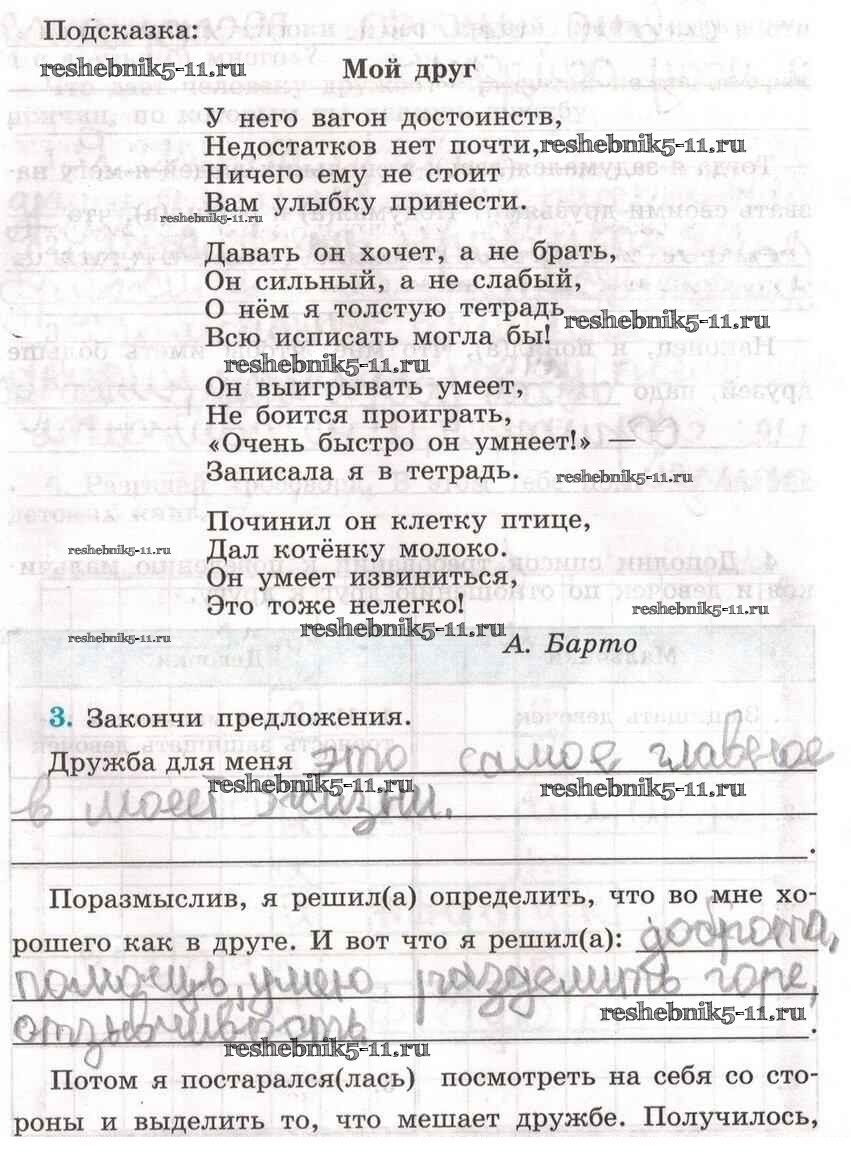 Подсказка:
reshebnik5-11.ru
Мой друг
У него вагон достоинств,
Недостатков нет почти, reshebnik5-11.ru
Ничего ему не стоит
Вам улыбку принести.
reshebnik5-11.ru
Давать он хочет, а не брать,
Он сильный, а не слабый,
О нём я толстую тетрадь
reshebnik5-11.ru
Всю исписать могла бы!
reshebnik5-11.ru
Он выигрывать умеет,
Не боится проиграть,
«Очень быстро он умнеет!» —
Записала я в тетрадь. reshebnik5-11.ru
Починил он клетку птице,
reshebnik5-11.ru Дал котёнку молоко.
Он умеет извиниться,
Это тоже нелегко! reshebnik5-11.ru
reshebnik5-11.ru reshebnik5-11.ru
А. Барто
3. Закончи предложения.
Дружба для меня это самое главное
reshebnik5-11.ru reshebnik5-11.ru
в моей жизни.
.
Поразмыслив, я решил(а) определить, что во мне хо-
рошего как в друге. И вот что я решил(а): доброта,
помощь, умею разделить горе,
reshebnik5-11.ru
отзывчивость.
reshebnik5-11.ru
Потом я постарался(лась) посмотреть на себя со сто-
роны и выделить то, что мешает дружбе. Получилось,